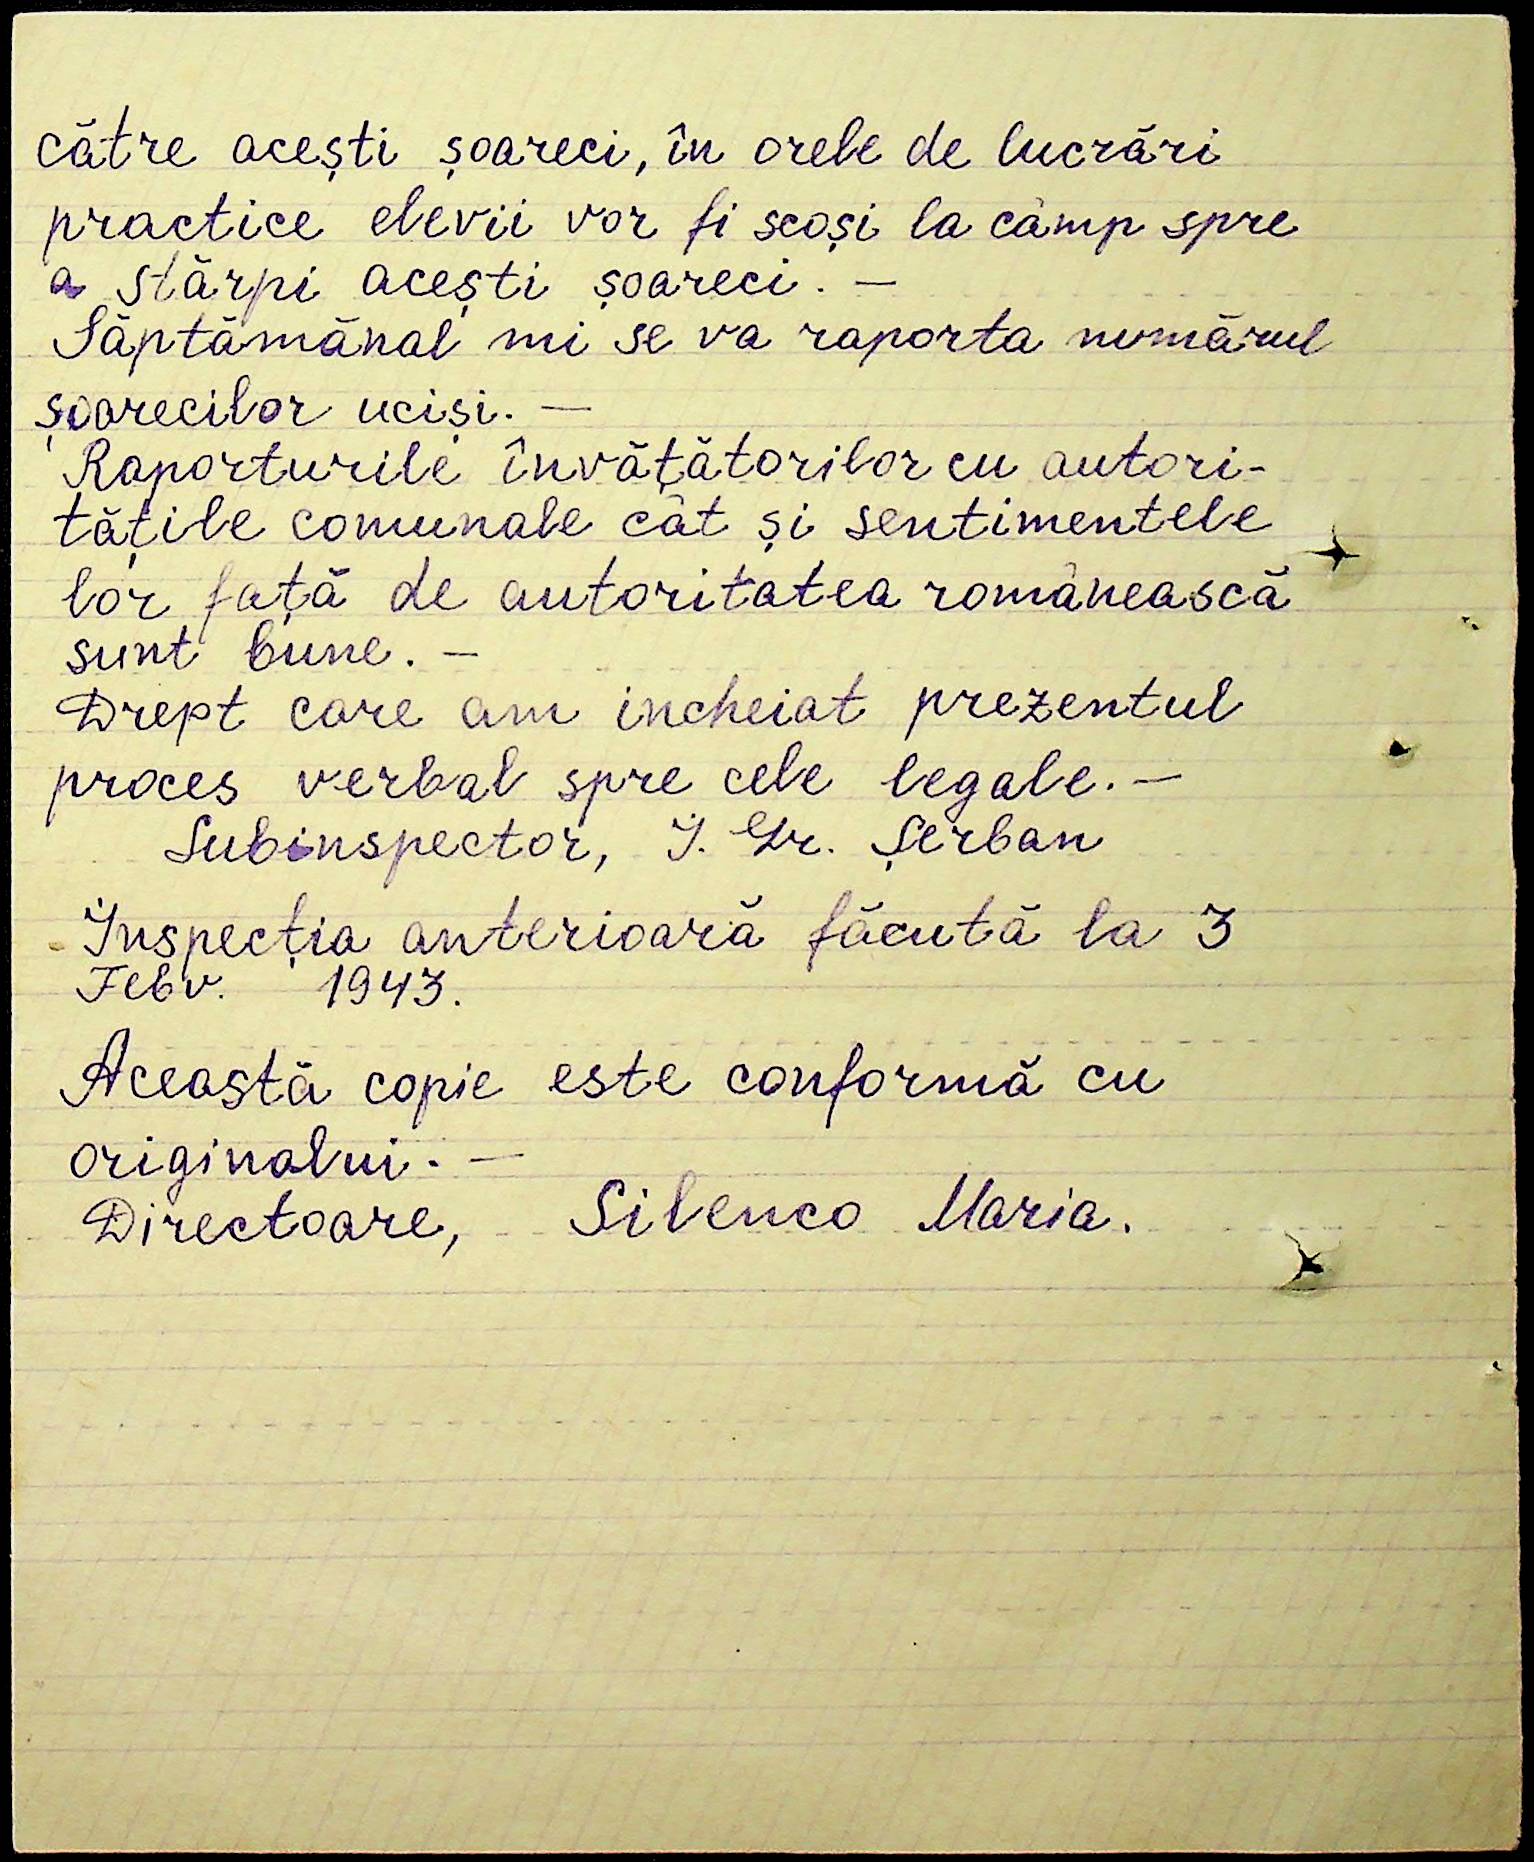 către acești șoareci, în orele de lucrări
practice elevii vor fi scoși la câmp spre
a stărpi acești șoareci. —
Săptămănal mi se va raporta numărul
șoarecilor uciși. —
Raporturile învățătorilor cu autori-
tățile comunale cât și sentimentele
lor față de autoritatea românească
sunt bune. —
Drept care am incheiat prezentul
proces verbal spre cele legale. —
Subinspector, I. Gr. Șerban
Inspecția anterioară făcută la 3
Febv. 1943.
Această copie este conformă cu
originalui. —
Directoare, Silenco Maria.